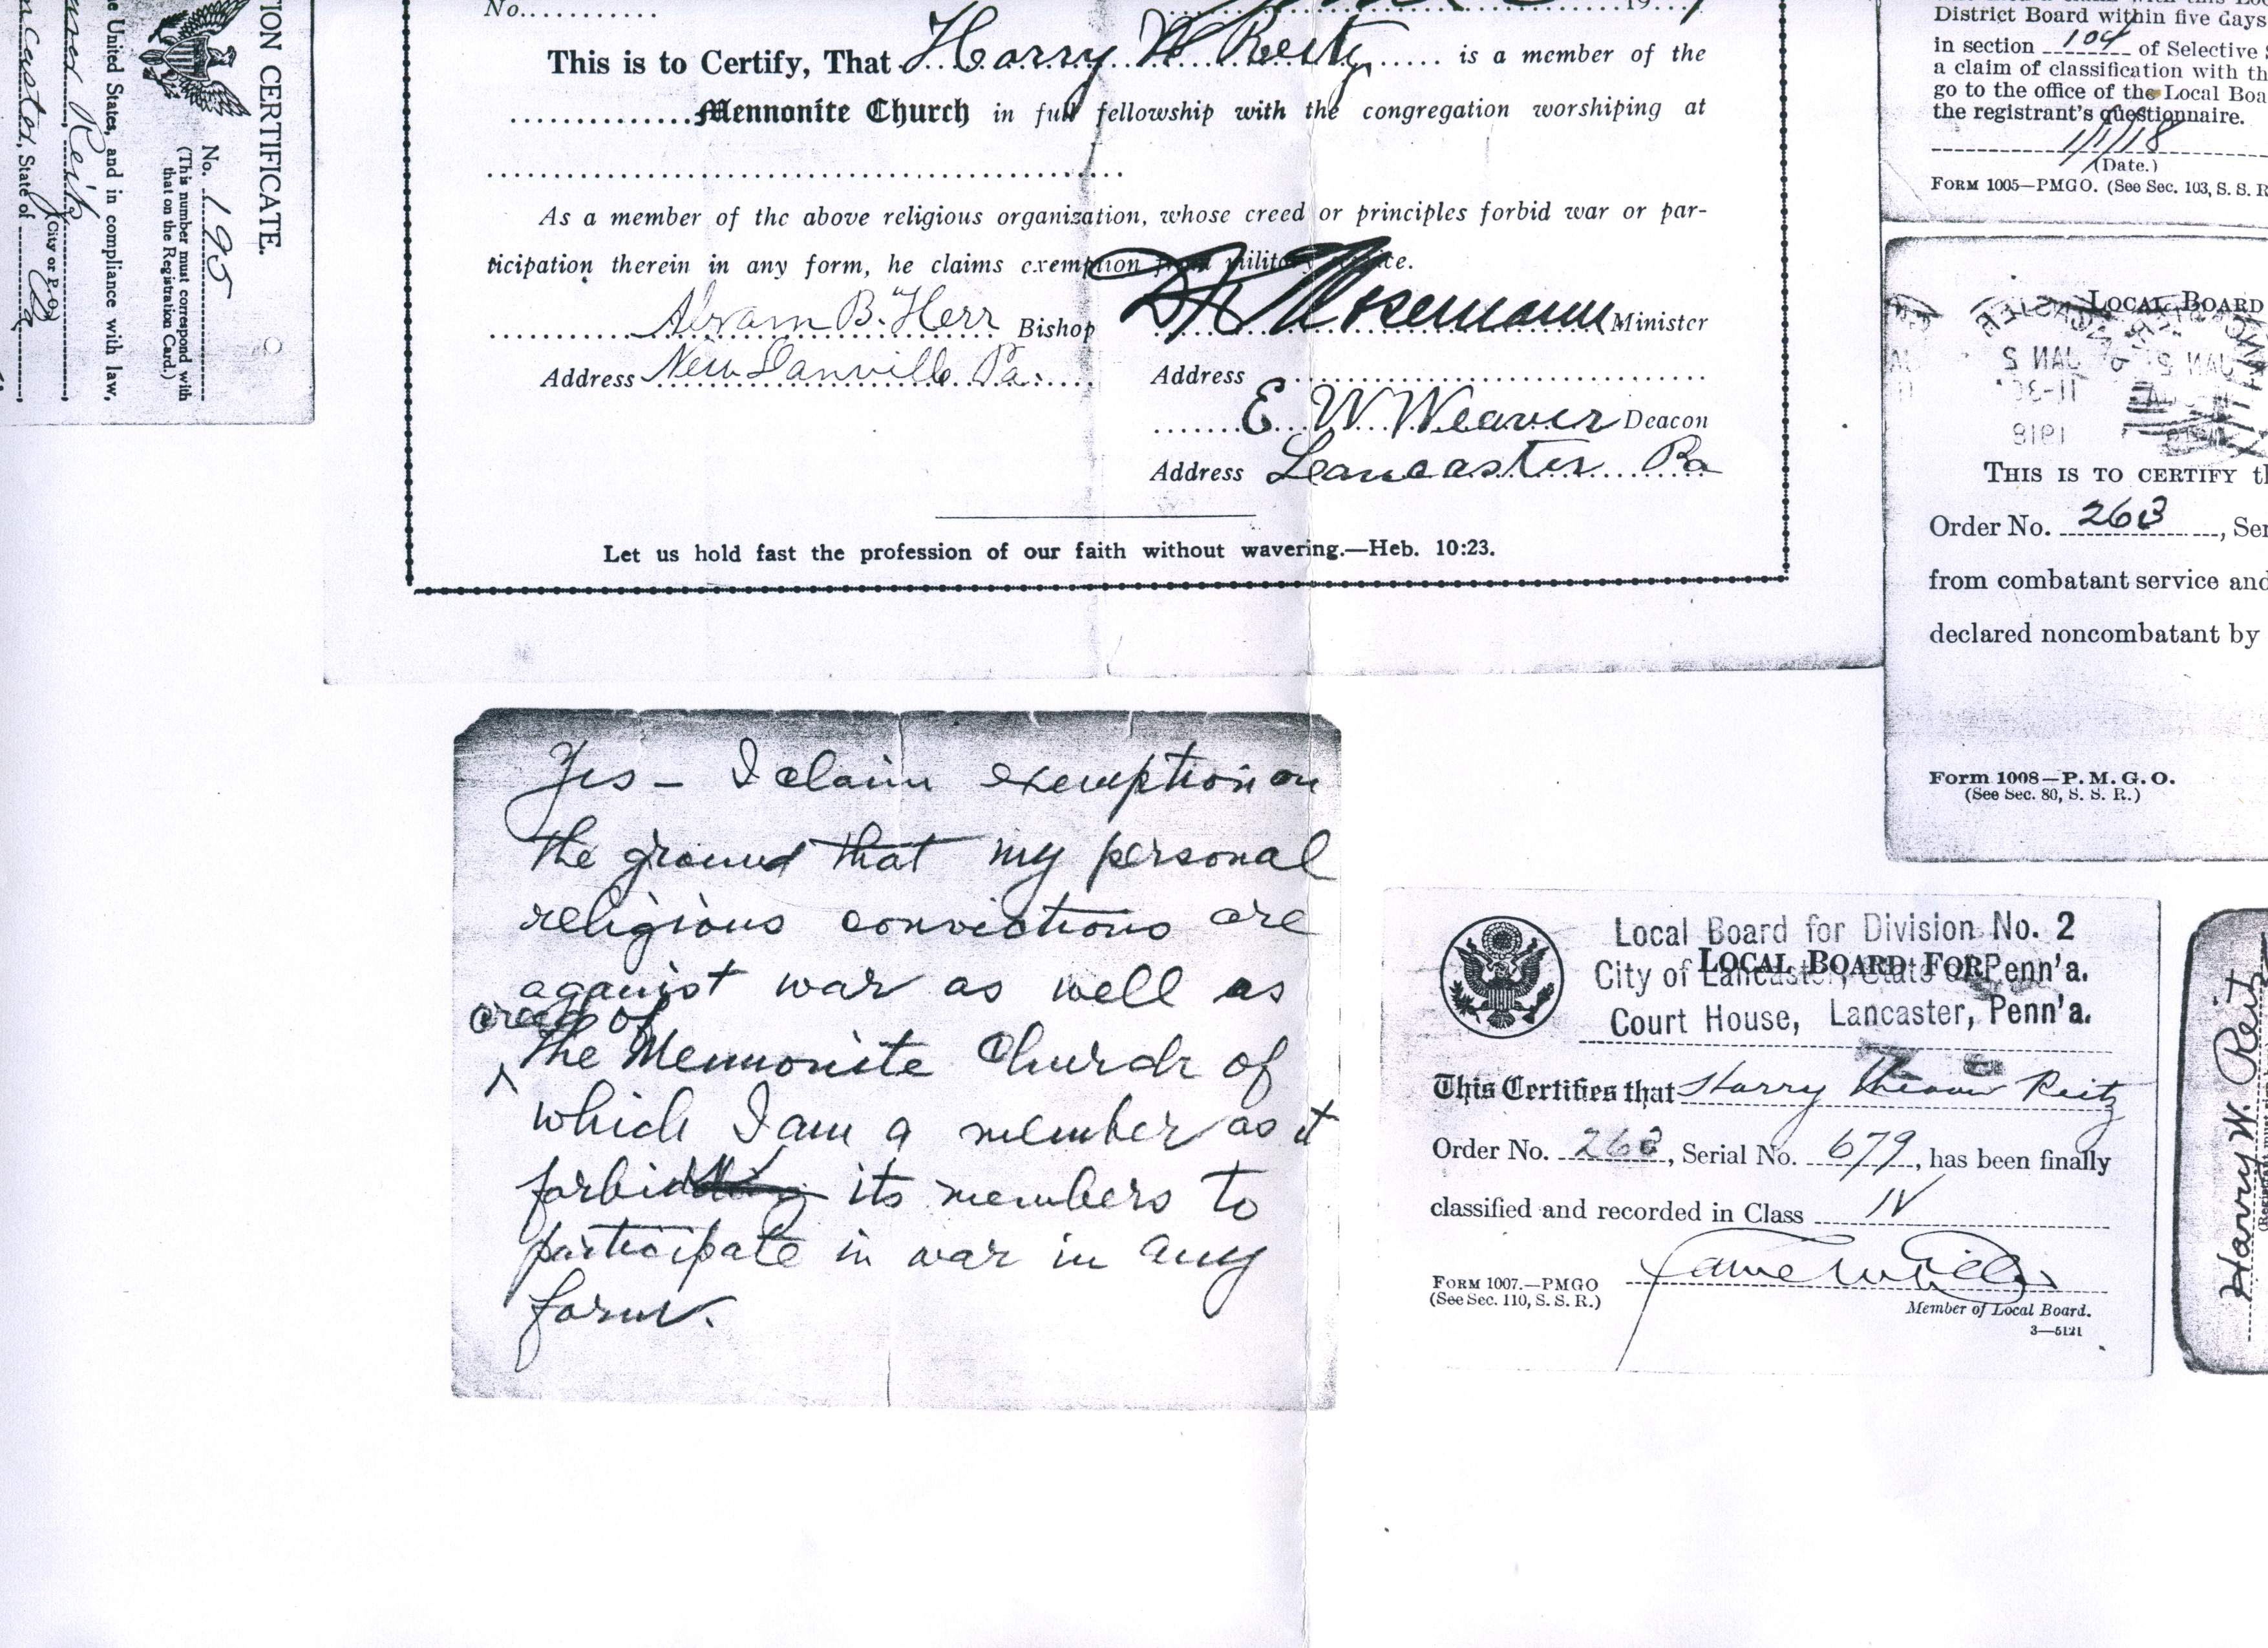 No............
19
This is to Certify, That Harry W Reitz is a member of the
Mennonite Church in full fellowship with the congregation worshiping at
As a member of the above religious organization, whose creed or principles forbid war or par-
ticipation therein in any form, he claims exemption from military service.
Abram B. Herr Bishop
Address New Danville Pa.
Mosemann Minister
Address
E W Weaver Deacon
Address Lancaster Pa
Let us hold fast the profession of our faith without wavering.—Heb. 10:23.
Yes – I claim exemption on
the ground that my personal
religious convictions are
against war as well as
creed of
^ the Mennonite Church of
which I am a member as it
forbid its members to
participate in war in any
form.
TION CERTIFICATE.
No. 195
(This number must correspond with
that on the Registration Card.)
e United States, and in compliance with law,
Reitz
(City or P. O.)
ncaster, State of Pa
District Board within five days
in section 104 of Selective S
a claim of classification with th
go to the office of the Local Boa
the registrant's questionnaire.
1/1/18
(Date.)
Form 1005—PMGO. (See Sec. 103, S. S. R
Local Board
JAN 2
11-30
1918
This is to certify th
Order No. 263, Ser
from combatant service and
declared noncombatant by
Form 1008—P. M. G. O.
(See Sec. 80, S. S. R.)
Local Board for Division No. 2
Local Board for
City of Lancaster, State of Penn'a.
Court House, Lancaster, Penn'a.
This Certifies that Harry Reitz
Order No. 263, Serial No. 679, has been finally
classified and recorded in Class IV
Form 1007.—PMGO
(See Sec. 110, S. S. R.)
Member of Local Board.
3—5121
Harry W. Reitz